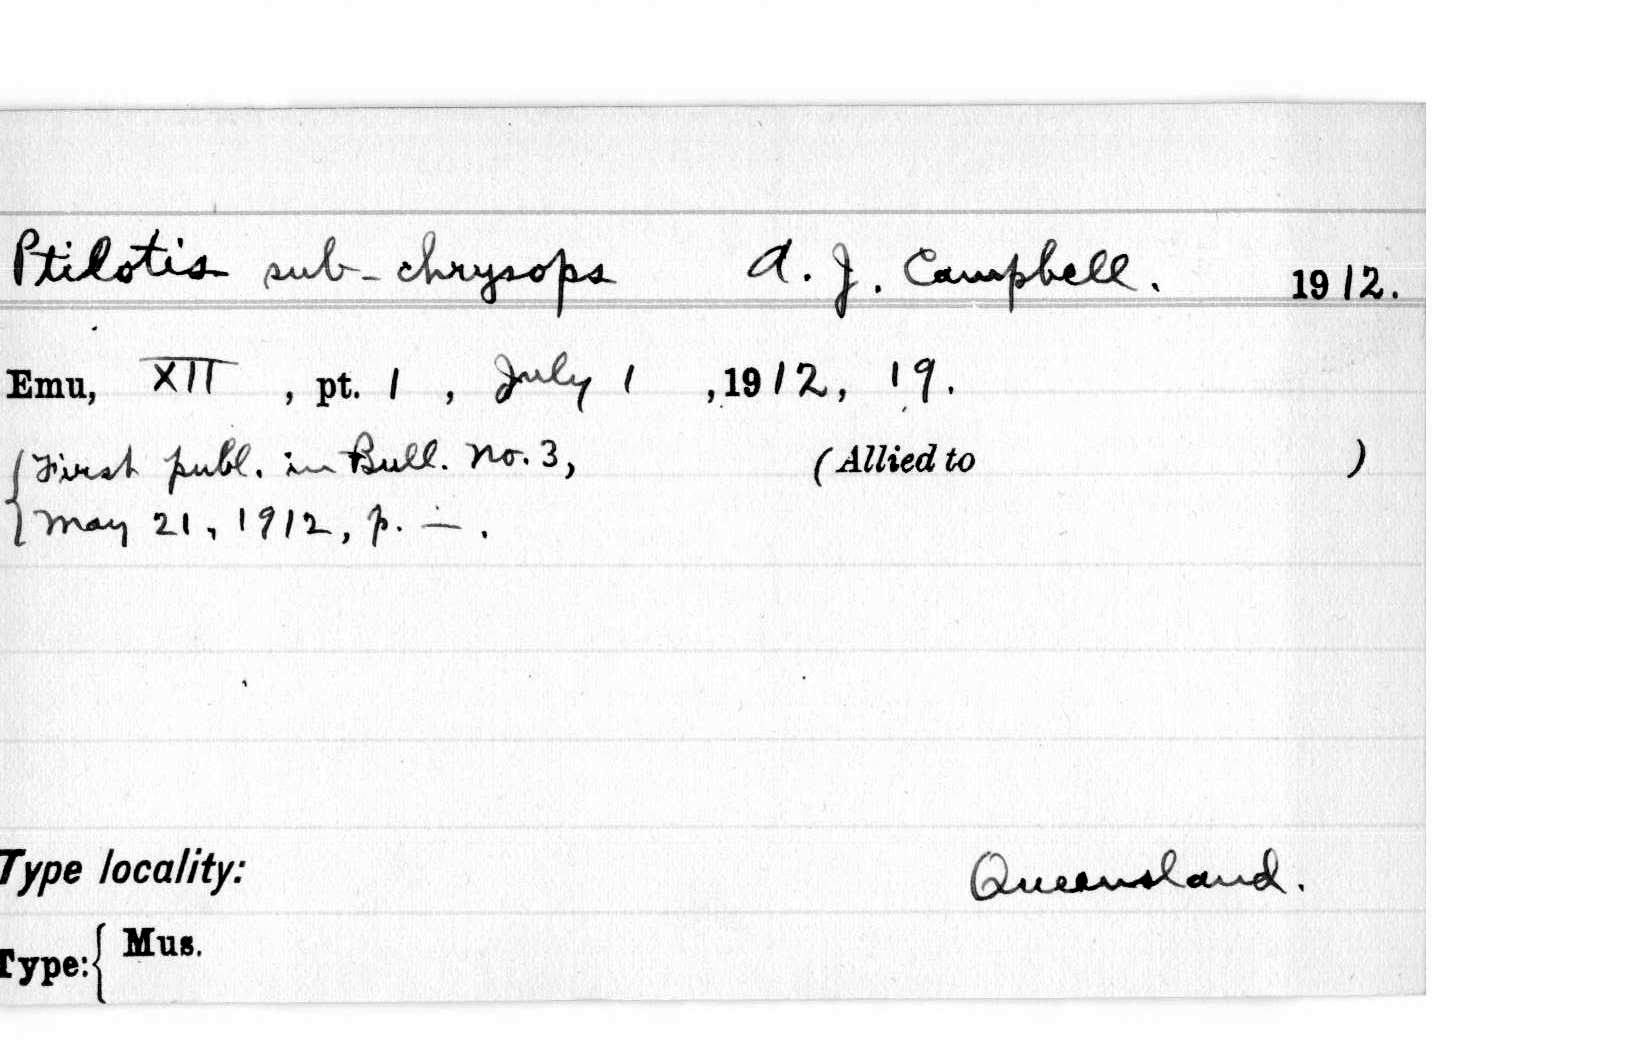 Ptilotis sub-chrysops A. J. Campbell. 1912.
Emu, XII, pt. 1, July 1, 1912, 19.
{First publ. in Bull. No. 3, (Allied to )
May 21, 1912, p. —.
Type locality: Queensland.
Type:{ Mus.